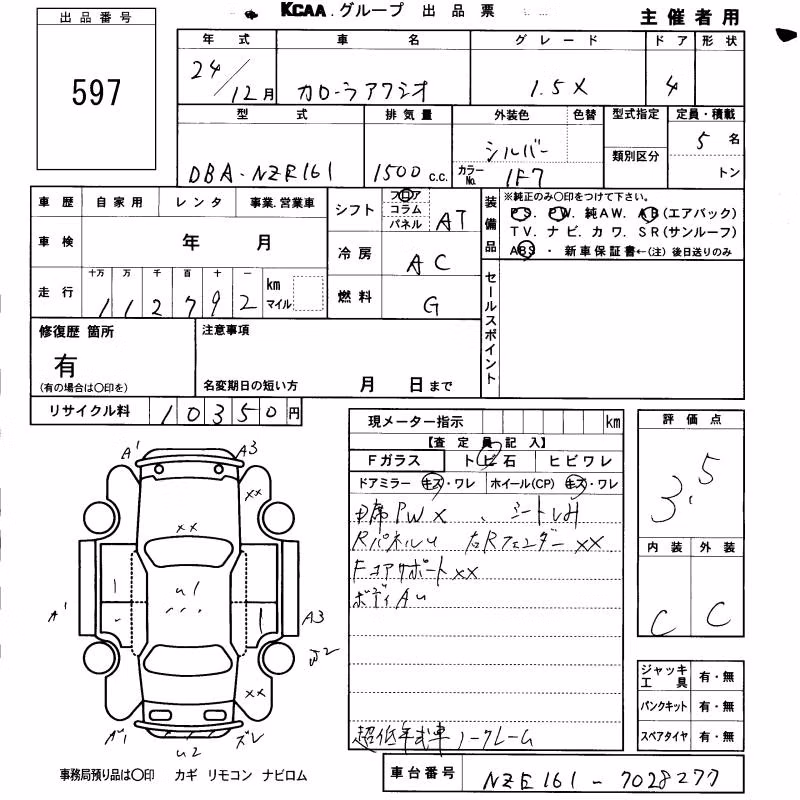 KCAA.グループ 出品票
主催者用
出品番号
597
年式 車名 グレード ドア 形状
24/12月 カローラアクシオ 1.5X 4
型式 排気量 外装色 色替 型式指定 定員・積載
DBA-NZE161 1500 c.c. シルバー カラーNo. 1F7 類別区分 5名
トン
車歴 自家用 レンタ 事業.営業車
車検 年 月
走行 十万 万 千 百 十 一
112792 km マイル
シフト フロア コラム パネル AT
冷房 AC
燃料 G
装備品
※純正のみ〇印をつけて下さい。
PS. PW. 純AW. AB(エアバック)
TV. ナビ. カワ. SR(サンルーフ)
ABS ・ 新車保証書←(注) 後日送りのみ
セールスポイント
修復歴 箇所
有
(有の場合は〇印を)
注意事項
名変期日の短い方 月 日まで
リサイクル料 10350円
現メーター指示 km
【査定員記入】
Fガラス トビ石 ヒビワレ
ドアミラー キズ・ワレ ホイール(CP) キズ・ワレ
席PWX、シートしみ
RパネルU 右Rフェンダー XX
Fコアサポート XX
ボディAU
超低年式車ノークレーム
評価点
3.5
内装 外装
C C
ジャッキ工具 有・無
パンクキット 有・無
スペアタイヤ 有・無
A' A3
XX
XX
U1
A' A3
XX
A'1 U2
事務局預り品は〇印 カギ リモコン ナビロム
車台番号 NZE161-7028277